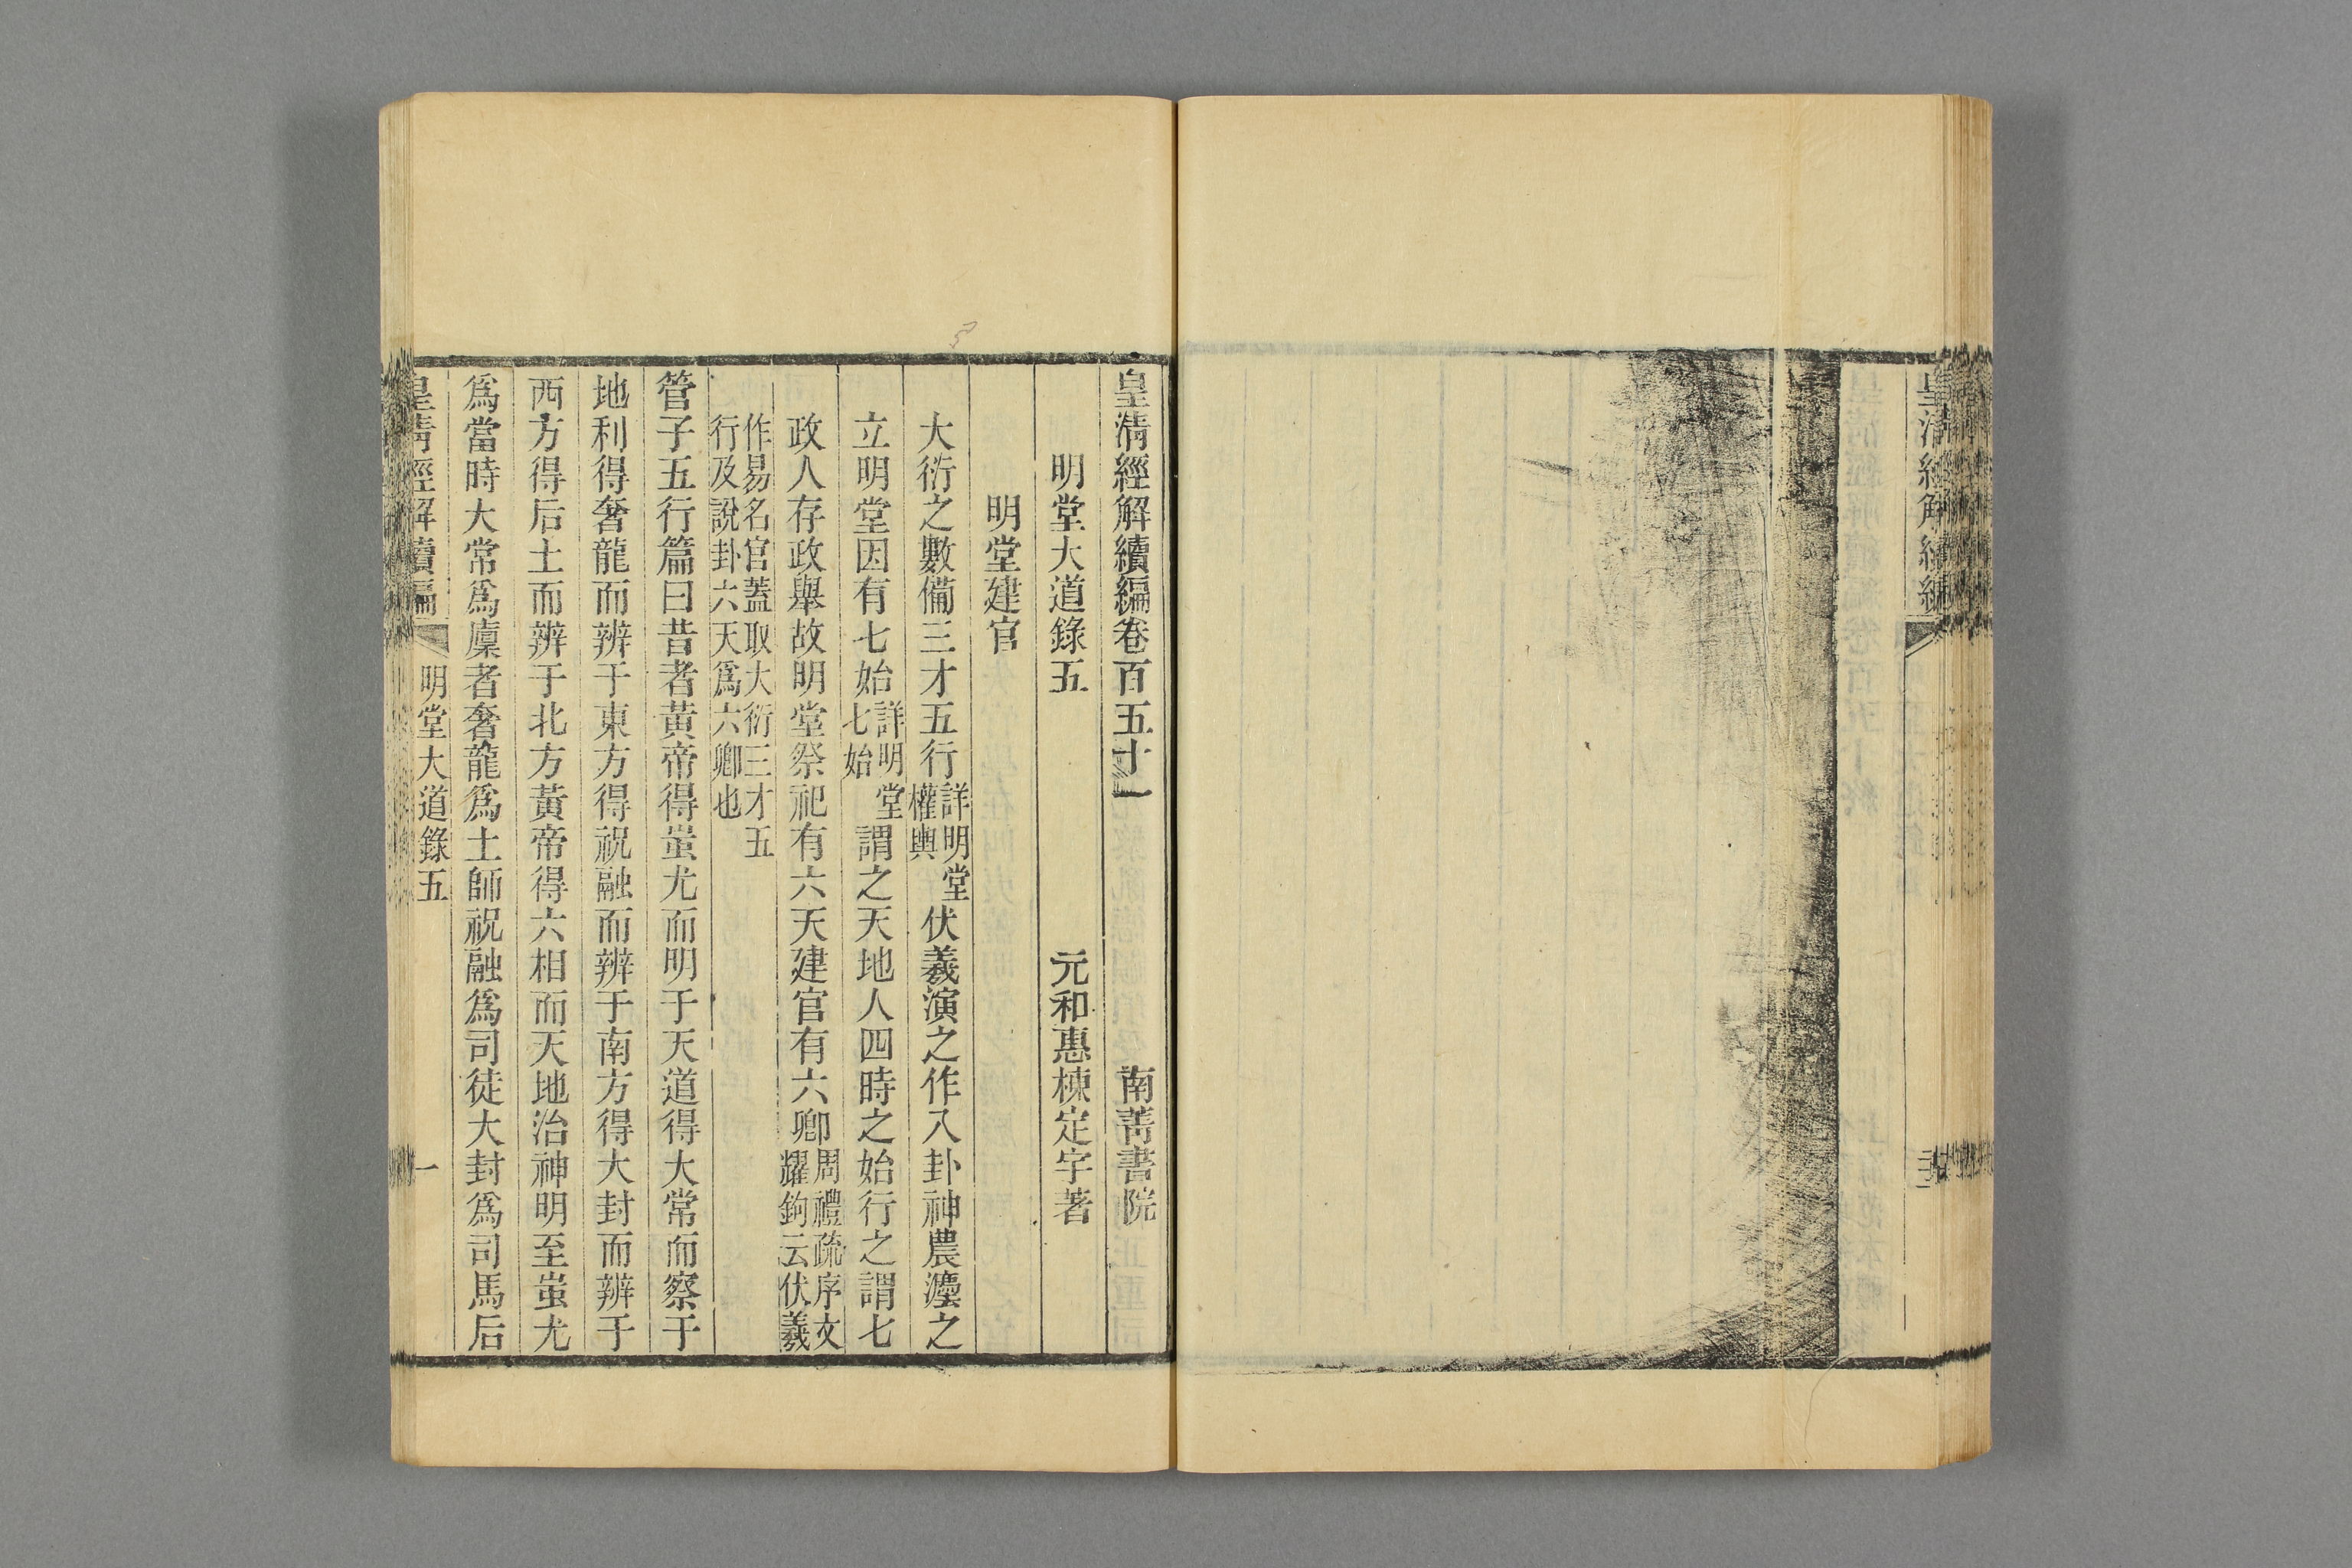 皇清經解續編
皇清經解續編卷百五十一 南菁書院
明堂大道錄五 元和惠棟定宇著
明堂建官
大衍之數備三才五行詳明堂權輿伏羲演之作八卦神農灋之
立明堂因有七始詳明堂七始謂之天地人四時之始行之謂七
政人存政舉故明堂祭祀有六天建官有六卿周禮疏序文耀鉤云伏羲
作易名官蓋取大衍三才五行及說卦六天爲六卿也
管子五行篇曰昔者黃帝得蚩尤而明于天道得大常而察于
地利得奢龍而辨于東方得祝融而辨于南方得大封而辨于
西方得后土而辨于北方黃帝得六相而天地治神明至蚩尤
爲當時大常爲廩者奢龍爲土師祝融爲司徒大封爲司馬后
皇清經解續編 明堂大道錄五 一